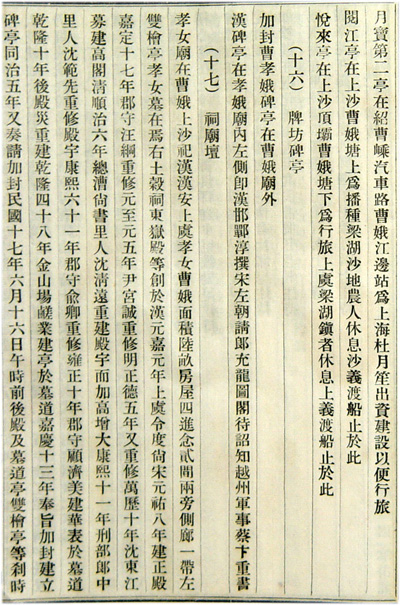 月寶第二亭在紹曹嵊汽車路曹娥江邊站爲上海杜月笙出資建設以便行旅
閱江亭在上沙曹娥塘上爲播種梁湖沙地農人休息沙義渡船止於此
悅來亭在上沙頂壩曹娥塘下爲行旅上虞梁湖鎮者休息上義渡船止於此
(十六) 牌坊碑亭
加封曹孝娥碑亭在曹娥廟外
漢碑亭在孝娥廟內左側卽漢邯鄲淳撰宋左朝請郎充龍圖閣待詔知越州軍事蔡卞重書
(十七) 祠廟壇
孝女廟在曹娥上沙祀漢漢安上虞孝女曹娥面積陸畝房屋四進念貳間兩旁側廊一帶左
雙檜亭孝女墓在焉右土穀祠東嶽殿等創於漢元嘉元年上虞令度尙宋元祐八年建正殿
嘉定十七年郡守汪綱重修元至元五年尹宮誠重修明正德五年又重修萬歷十年沈東江
墓建高閣淸順治六年總漕尙書里人沈淸遠重建殿宇而加高增大康熙十一年刑部郎中
里人沈範先重修殿宇康熙六十一年郡守俞卿重修雍正十年郡守顧濟美建華表於墓道
乾隆十年後殿災重建乾隆四十八年金山場鹺業建亭於墓道嘉慶十三年奉旨加封建立
碑亭同治五年又奏請加封民國十七年六月十六日午時前後殿及墓道亭雙檜亭等刹時